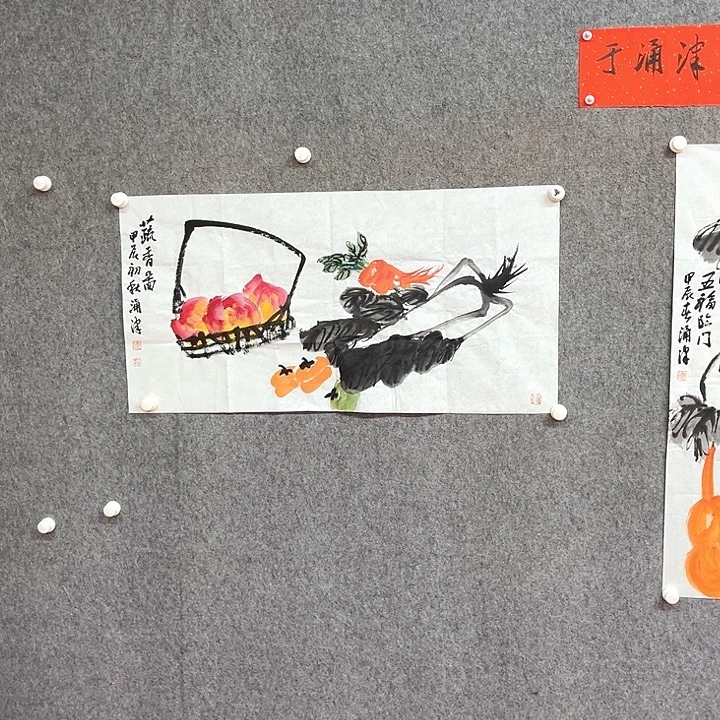 于涌津
蔬香图
甲辰初秋涌津
五福临门
甲辰春涌津